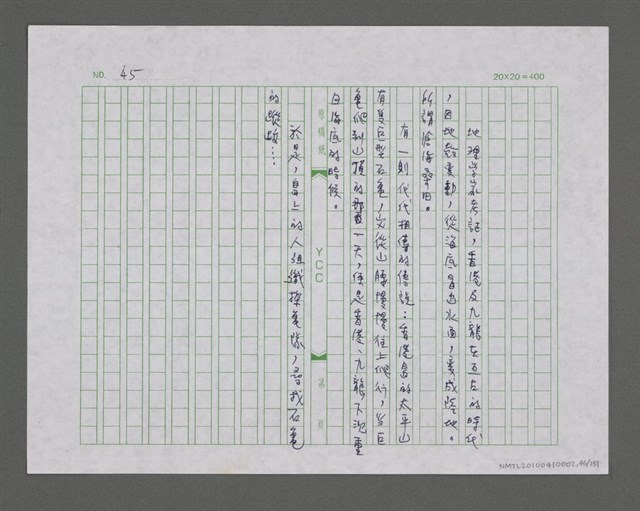 NO. 45
20X20=400
地理学家考証，香港及九龍在亙古的時代
，因地殼変動，從海底冒出水面，変成陸地。
所謂滄海桑田。
有一則代代相傳的傳說：香港島的太平山
有隻巨型石亀，文從山腰慢慢往上爬行，当巨
亀爬到山頂的那一天，便是香港、九龍下沉重
回海底的時候。
稿紙
YCC
第 頁
於是，島上的人組織探亀隊，尋找石亀
的蹤跡…
NMTL20100410002.46/151